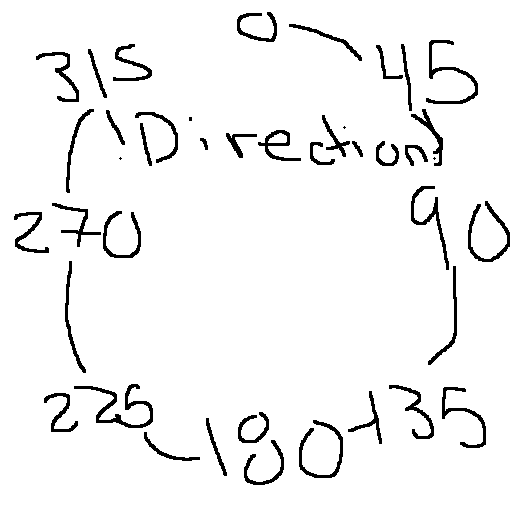 0
315 45
Directions
270 90
225 180 135